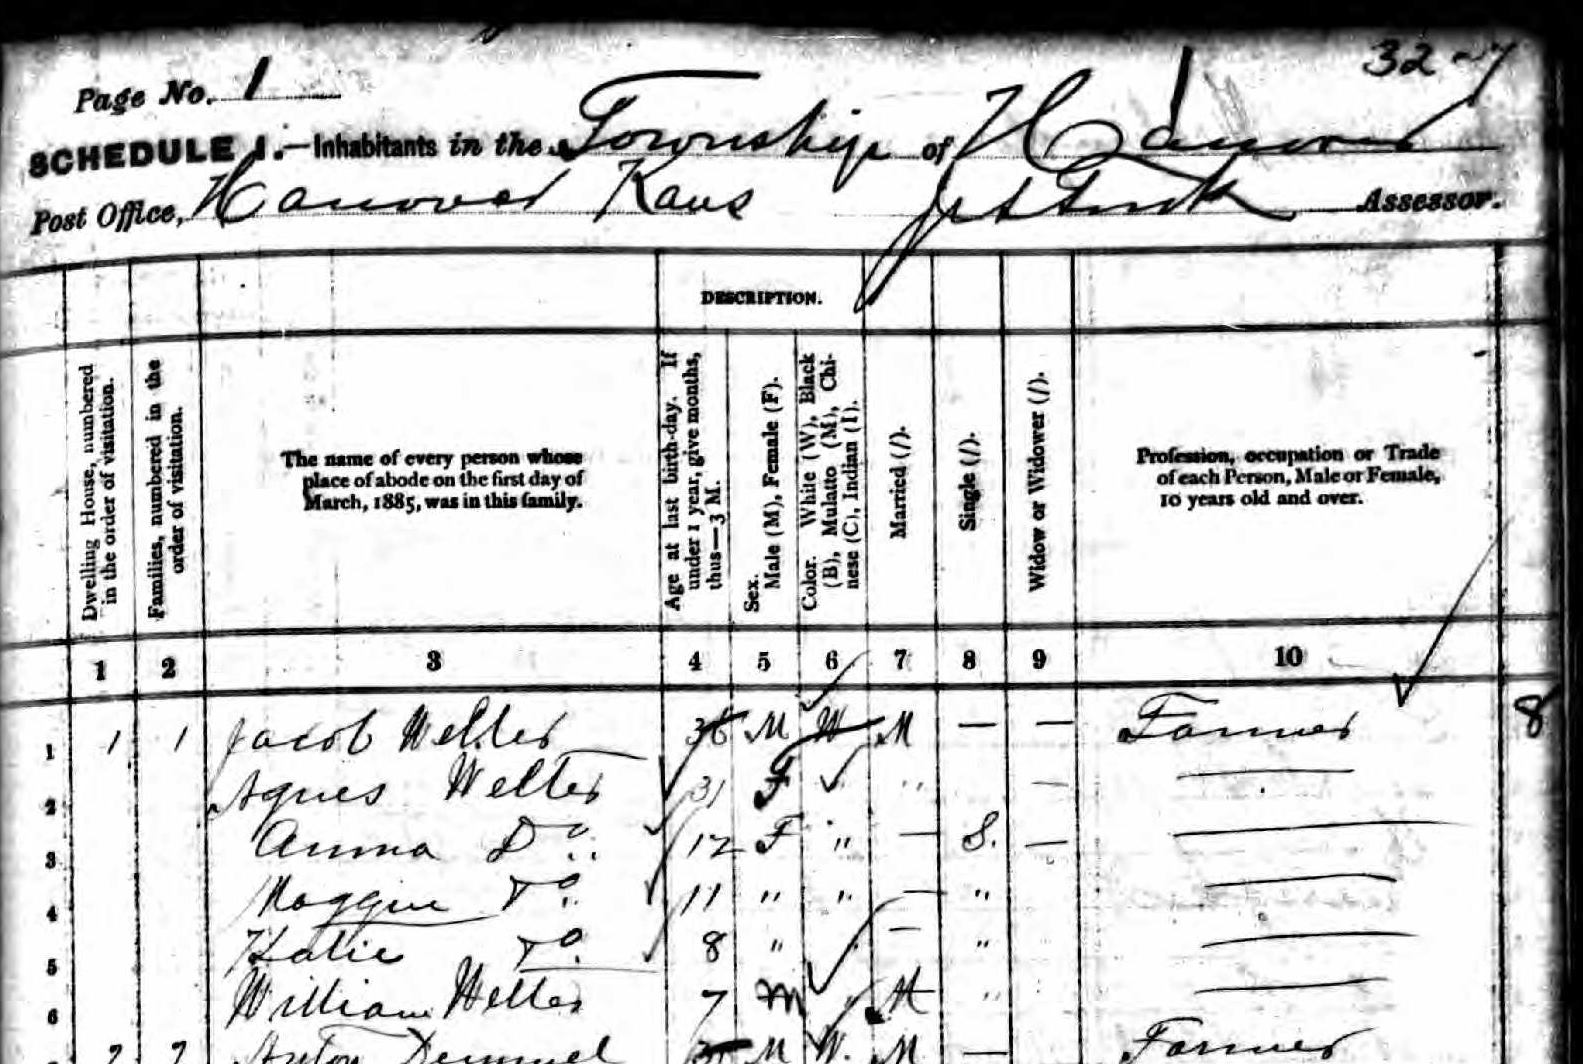 32
Page No. 1
SCHEDULE 1.—Inhabitants in the Township of Hanover
Post Office, Hanover Kans Assessor.
DESCRIPTION.
Dwelling House, numbered
in the order of visitation.
Families, numbered in the
order of visitation.
The name of every person whose
place of abode on the first day of
March, 1885, was in this family.
Age at last birth-day. If
under 1 year, give months,
thus—3 M.
Sex.
Male (M), Female (F).
Color. White (W), Black
(B), Mulatto (M), Chi-
nese (C), Indian (I).
Married (/).
Single (/).
Widow or Widower (/).
Profession, occupation or Trade
of each Person, Male or Female,
10 years old and over.
1 2 3 4 5 6 7 8 9 10
1 1 1 Jacob Welter 36 M W M — — Farmer 8
2 Agnes Welter 31 F " —
3 Anna Do 12 F " — S. —
4 Maggie Do 11 " " — "
5 Katie Do 8 " — "
6 William Welter 7 M "
2 2 Anton M W. M — Farmer